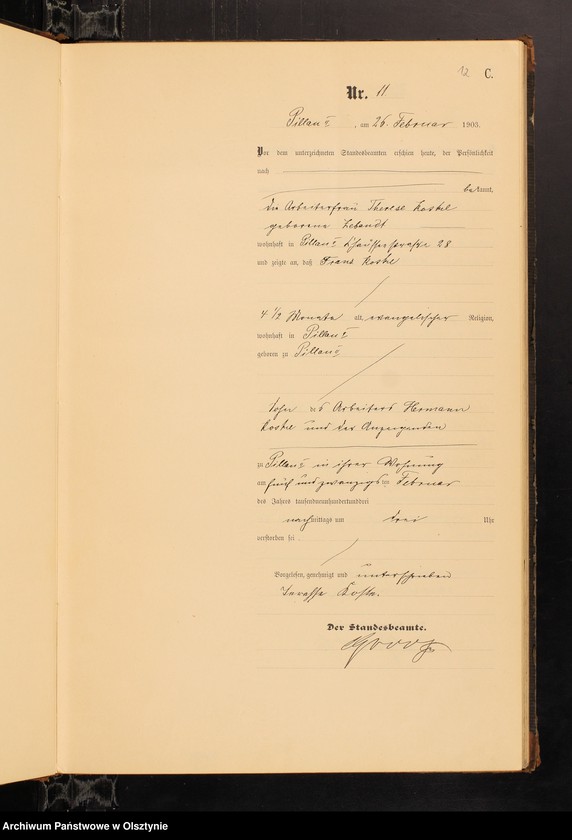 12 C.
Nr. 11
Pillau I, am 26. Februar 1903.
Vor dem unterzeichneten Standesbeamten erschien heute, der Persönlichkeit
nach
bekannt,
die Arbeiterfrau Therese
geborene
wohnhaft in Pillau I Chausseestraße 28
und zeigte an, daß Franz
4 1/2 Monate alt, evangelischer Religion,
wohnhaft in Pillau I
geboren zu Pillau I
Sohn des Arbeiters Hermann
und der Anzeigenden
zu Pillau I in ihrer Wohnung
am fünf und zwanzigsten Februar
des Jahres tausendneunhundertunddrei
nachmittags um drei Uhr
verstorben sei.
Vorgelesen, genehmigt und unterschrieben
Der Standesbeamte.
Archiwum Państwowe w Olsztynie